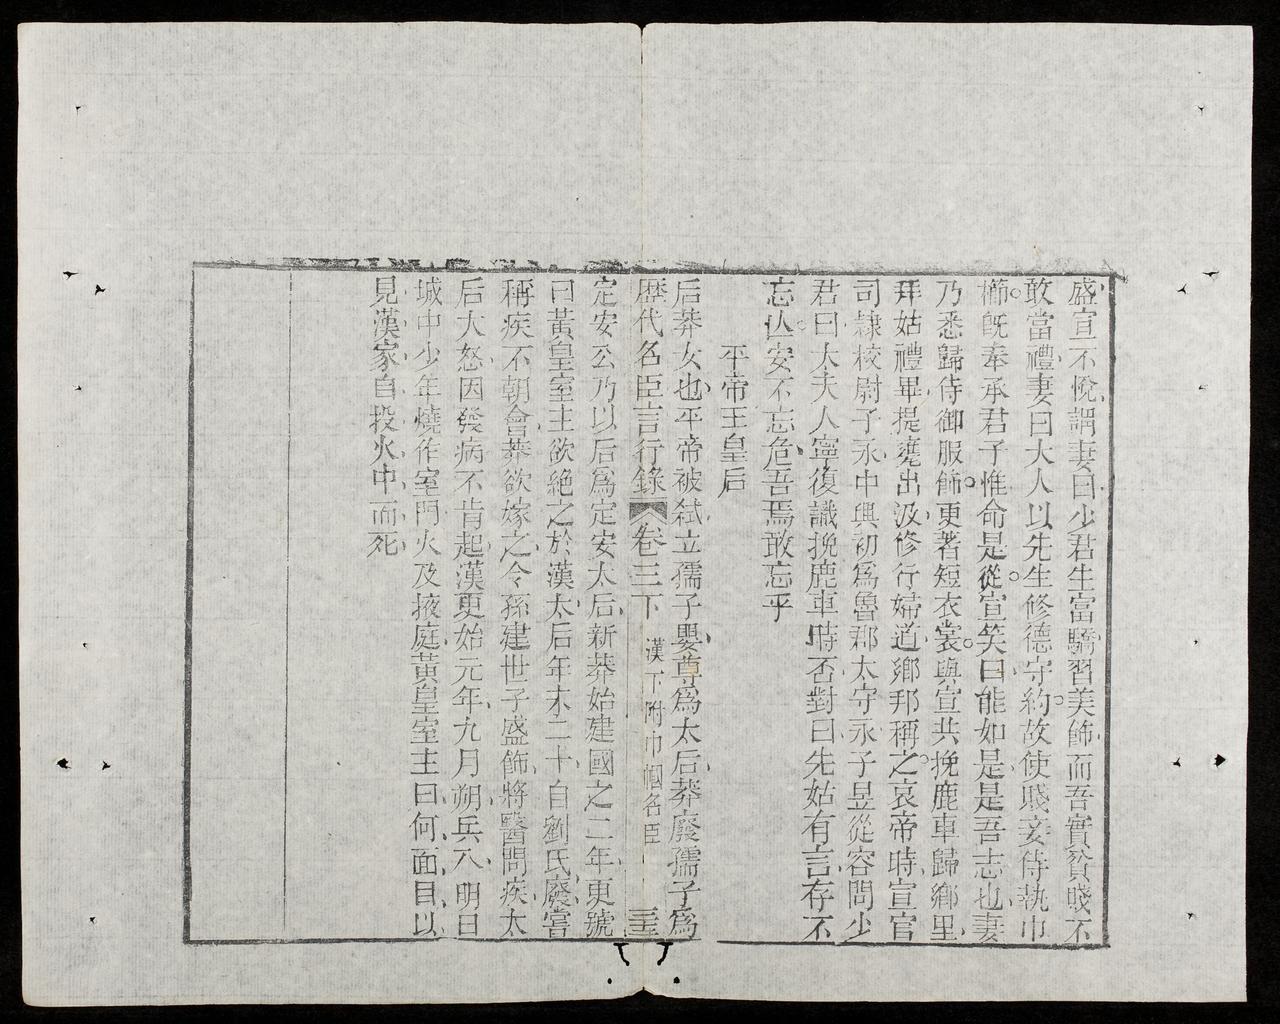 盛宣不悅謂妻曰少君生富驕習美飾而吾實貧賤不
敢當禮妻曰大人以先生修德守約故使賤妾侍執巾
櫛旣奉承君子惟命是從宣笑曰能如是是吾志也妻
乃悉歸侍御服飾更著短衣裳與宣共挽鹿車歸鄉里
拜姑禮畢提甕出汲修行婦道鄉邦稱之哀帝時宣官
司隸校尉子永中興初爲魯郡太守永子昱從容問少
君曰太夫人寧復識挽鹿車時否對曰先姑有言存不
忘亾安不忘危吾焉敢忘乎
平帝王皇后
后莽女也平帝被弑立孺子嬰尊爲太后莽廢孺子爲
歷代名臣言行錄 卷三下 漢下附巾幗名臣
定安公乃以后爲定安太后新莽始建國之二年更號
曰黃皇室主欲絶之於漢太后年未二十自劉氏廢嘗
稱疾不朝會莽欲嫁之令孫建世子盛飾將醫問疾太
后大怒因發病不肯起漢更始元年九月朔兵入明日
城中少年燒作室門火及掖庭黃皇室主曰何面目以
見漢家自投火中而死